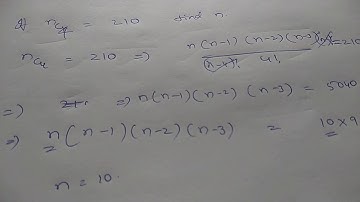 If nC4 = 210 find n.
nC4 = 210 => n(n-1)(n-2)(n-3)(n-4)! / (n-4)! 4! = 210
=> => n(n-1)(n-2)(n-3) = 5040
=> n(n-1)(n-2)(n-3) = 10×9
n = 10.